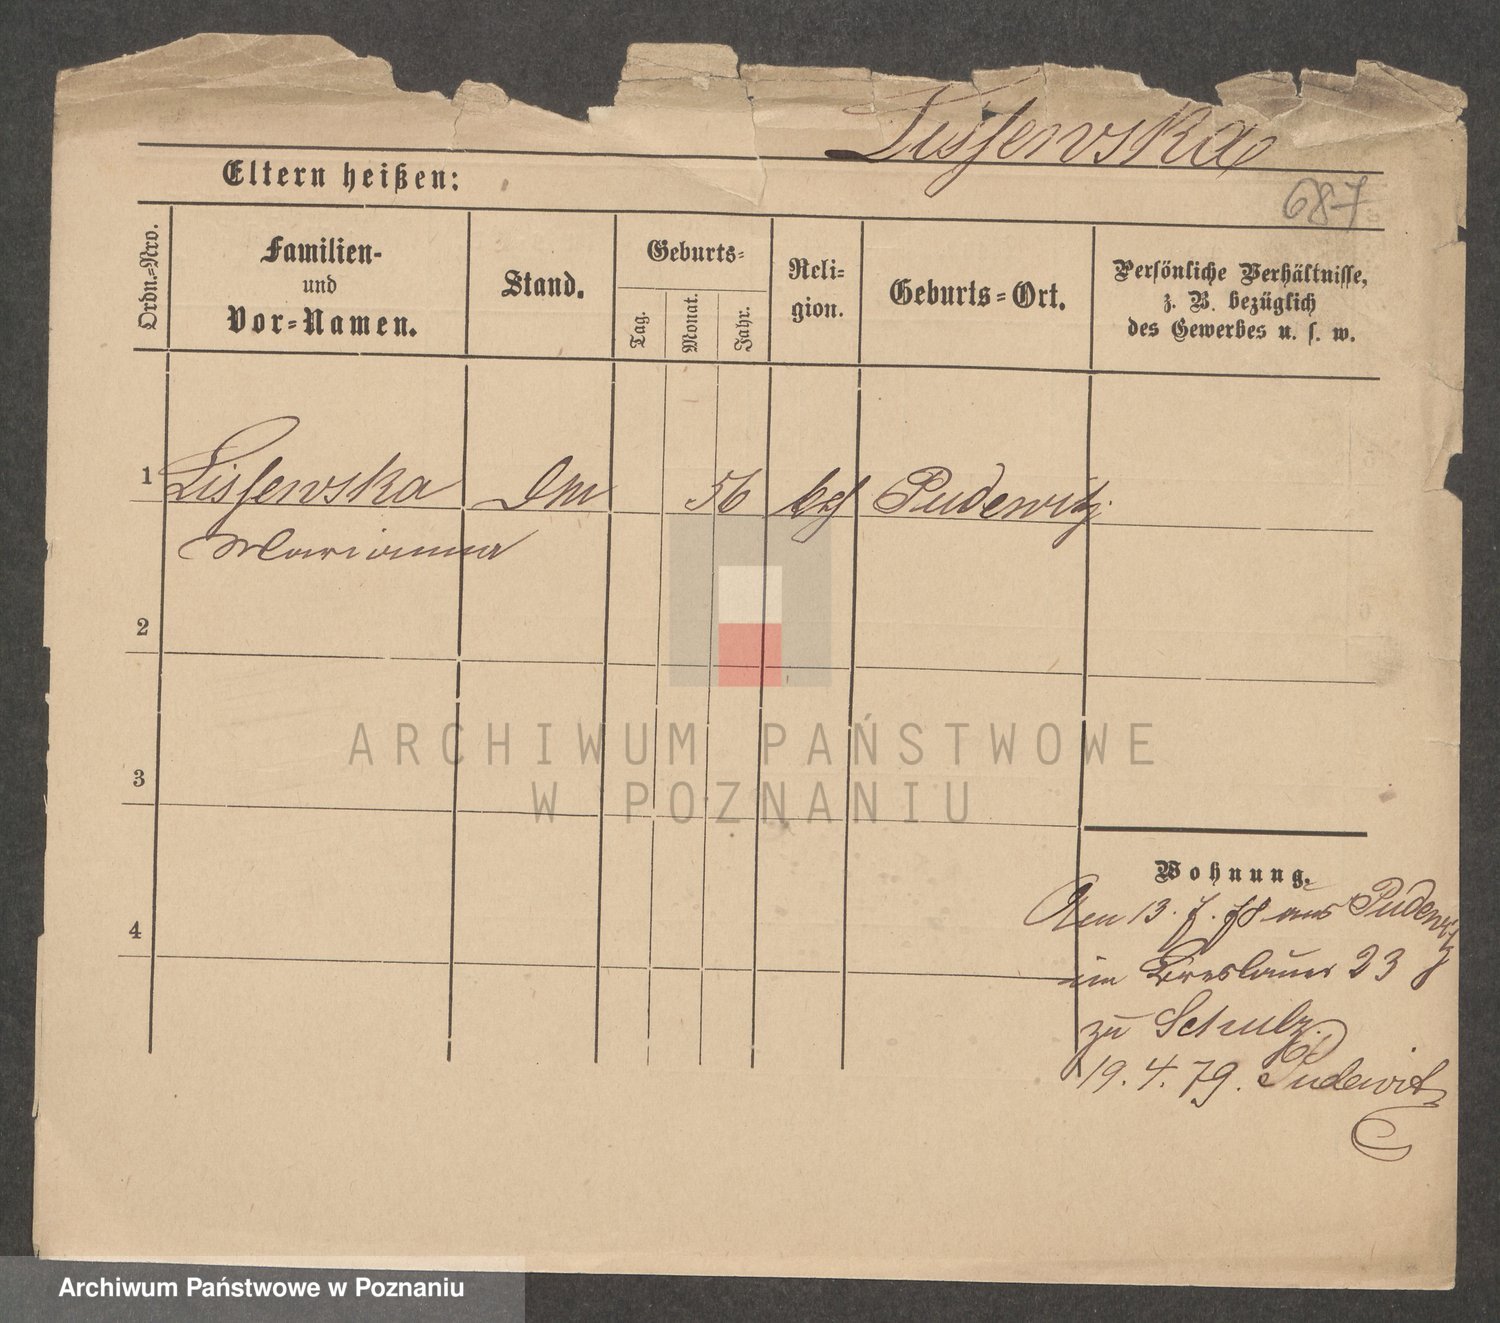 Lissewska
687
Eltern heißen:
Ordn.=Nro.
Familien-
und
Vor=Namen.
Stand.
Geburts=
Tag.
Monat.
Jahr.
Reli=
gion.
Geburts=Ort.
Persönliche Verhältnisse,
z. B. bezüglich
des Gewerbes u. s. w.
1
Lissewska
56
Pudewitz
Marianna
2
3
4
Wohnung.
Den 13. 7. 78 aus Pudewitz
im Breslauer 23
zu Schulz.
19. 4. 79. Pudewitz
ARCHIWUM PAŃSTWOWE
W POZNANIU
Archiwum Państwowe w Poznaniu